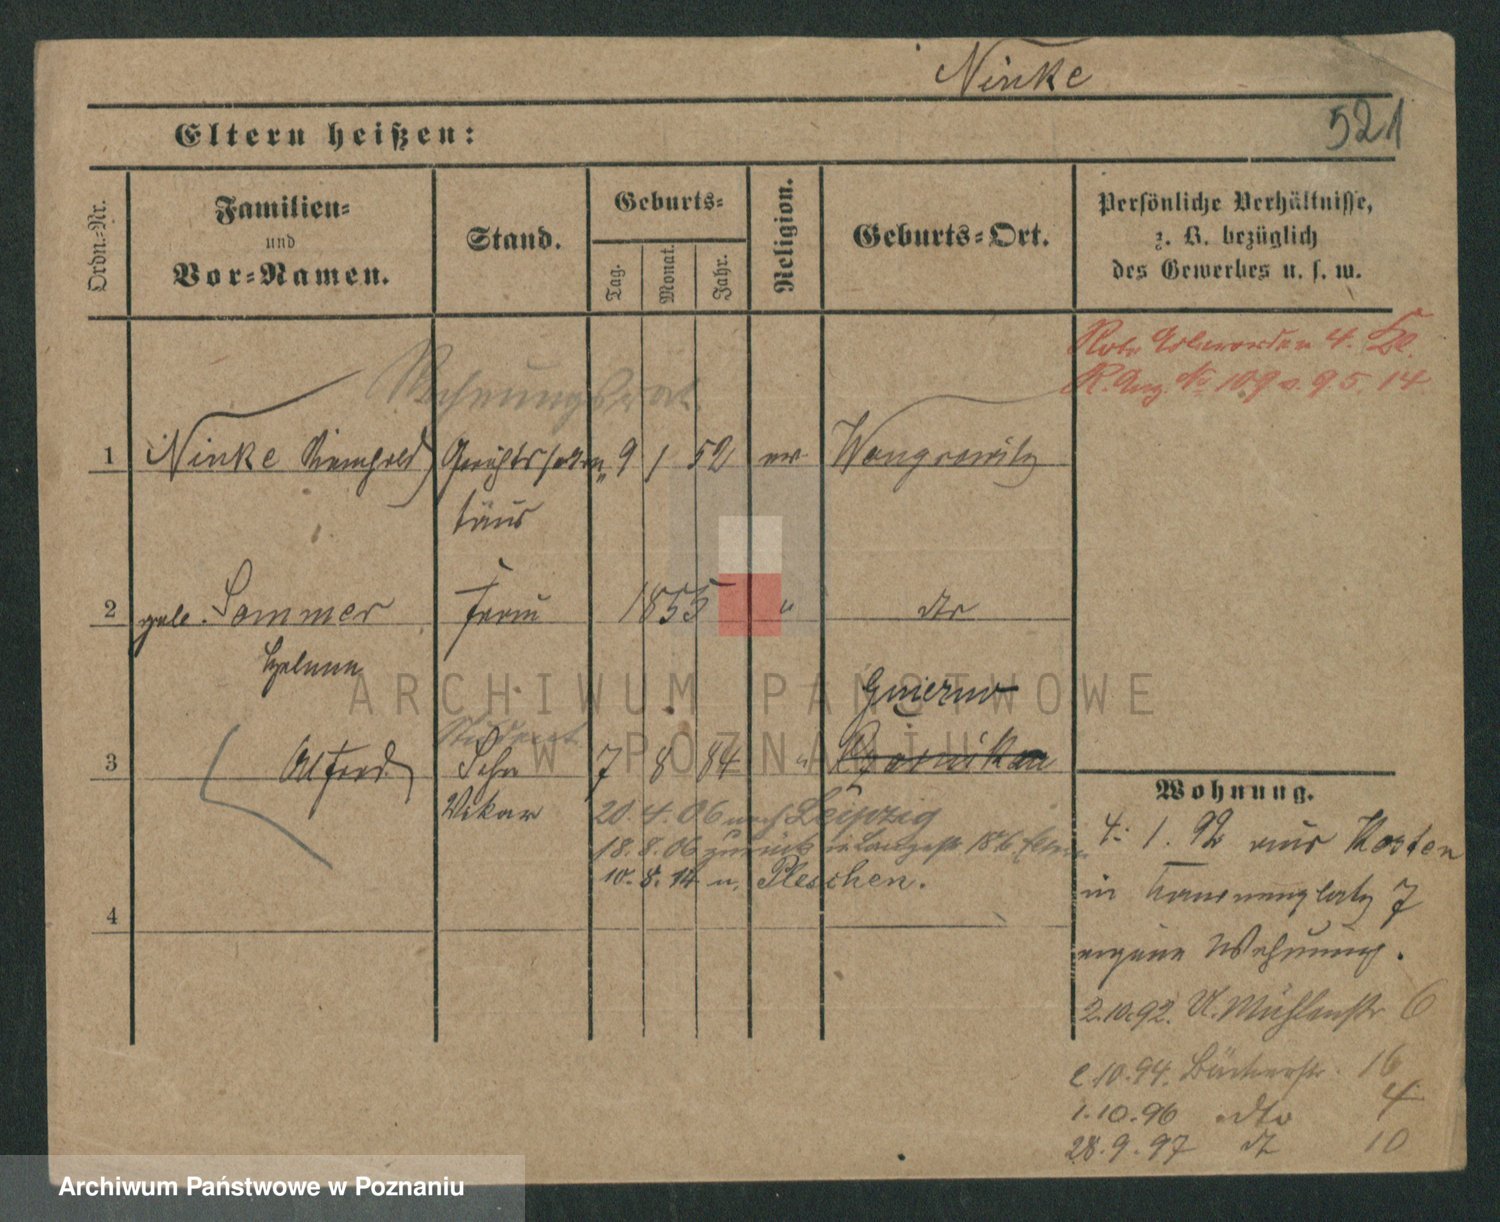 Ninke
521
Eltern heißen:
Ordn.-Nr.
Familien-
und
Vor-Namen.
Stand.
Geburts-
Tag.
Monat.
Jahr.
Religion.
Geburts-Ort.
Persönliche Verhältnisse,
z. B. bezüglich
des Gewerbes u. s. w.
Rote 4. Kl.
R. Anz. No 109 v. 9.5.14
Rechnungsrat
1 Ninke Reinhold Gerichtssekre- 9 1 52 ev Wongrowitz
tär
2 geb. Sommer Frau 1855 " dto
Helene
Student
3 Alfred Sohn 7 8 84 "
Vikar
20.4.06 nach Leipzig
18.8.06 zurück
10.8.14 n. Pleschen.
4
Wohnung.
4. 1. 92 aus Kosten
in 7
eigene Wohnung.
2.10.92. U. Mühlenstr 6
2.10.94. Bäckerstr. 16
1.10.96 dto 4
28.9.97 dt 10
ARCHIWUM PAŃSTWOWE
W POZNANIU
Archiwum Państwowe w Poznaniu